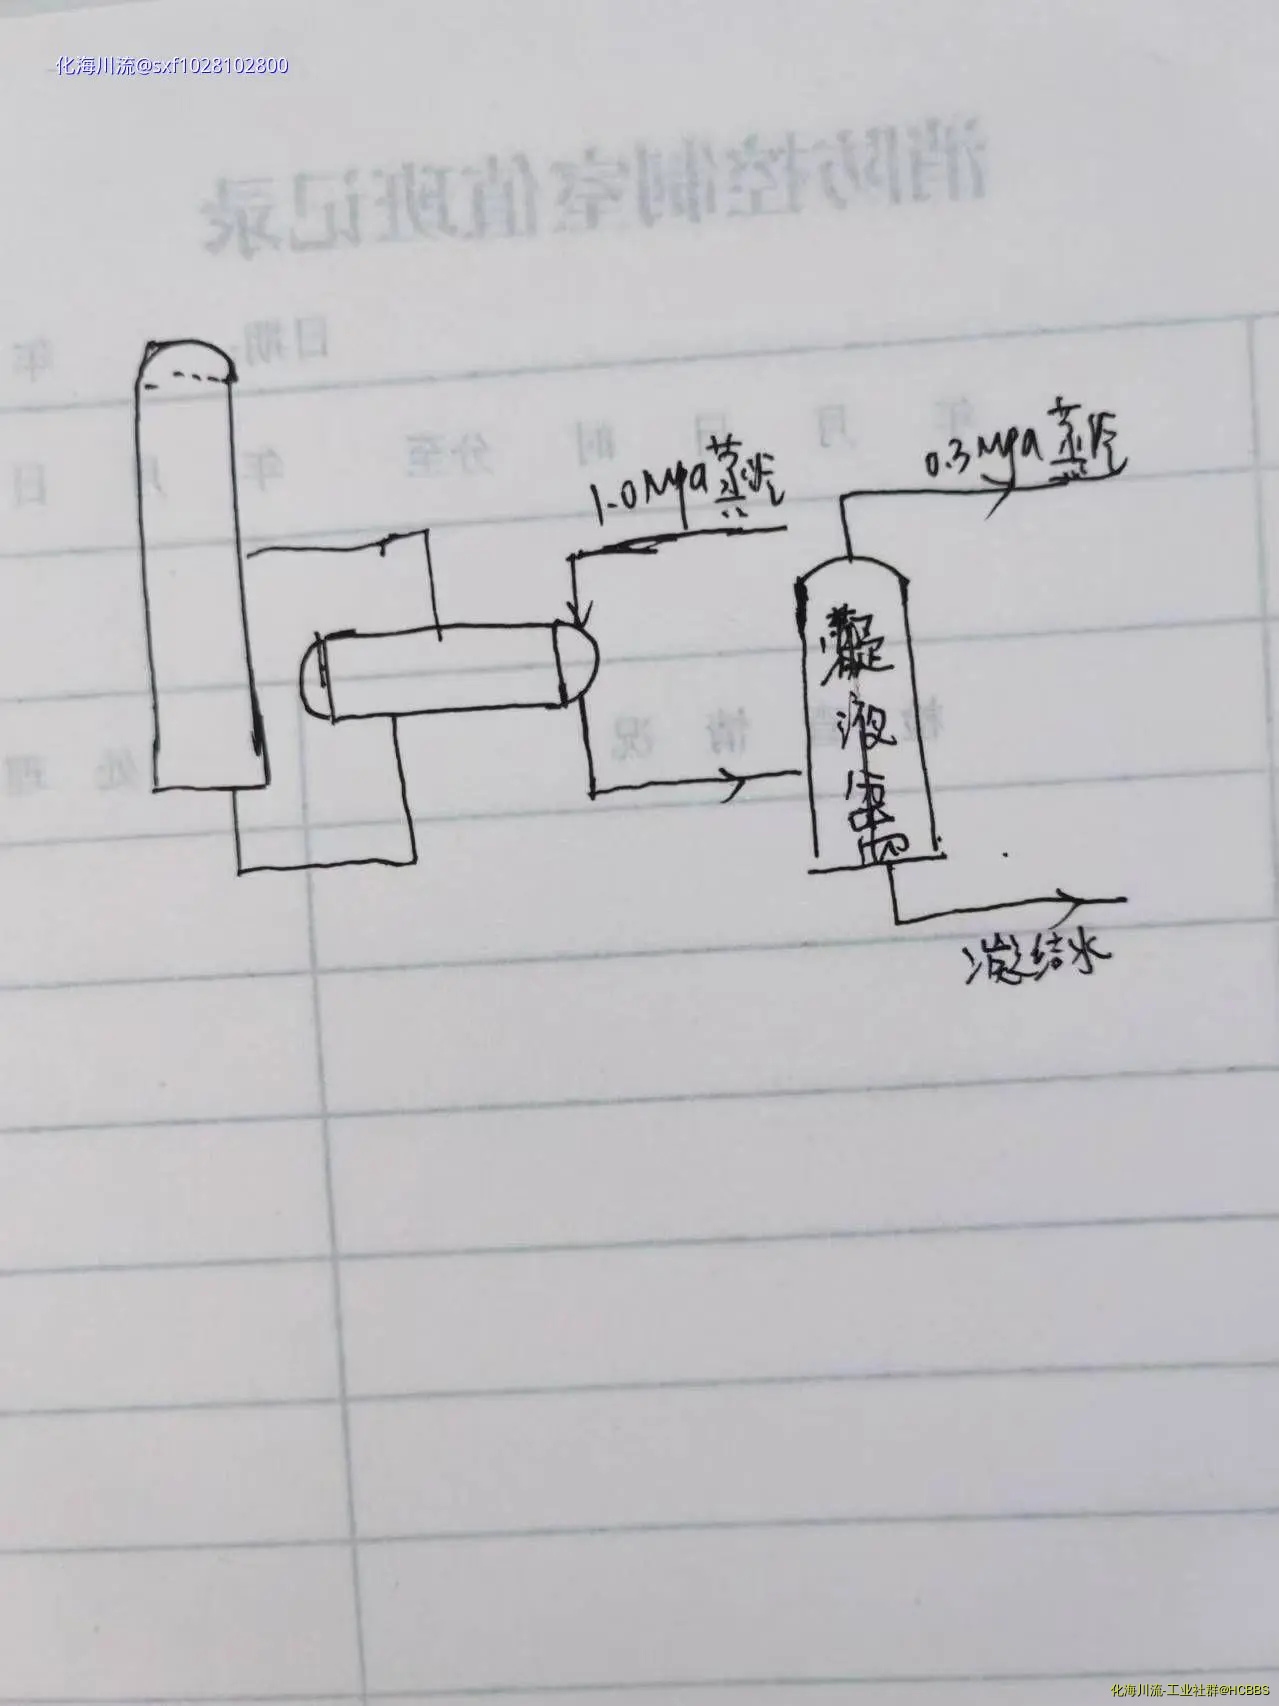 化海川流@sxf1028102800
消防控制室值班记录
日期:
年
年 月 日 时 分至 年 月 日
1.0Mpa蒸汽
0.3Mpa蒸汽
凝液罐
检查情况
处理
凝结水
化海川流-工业社群@HCBBS